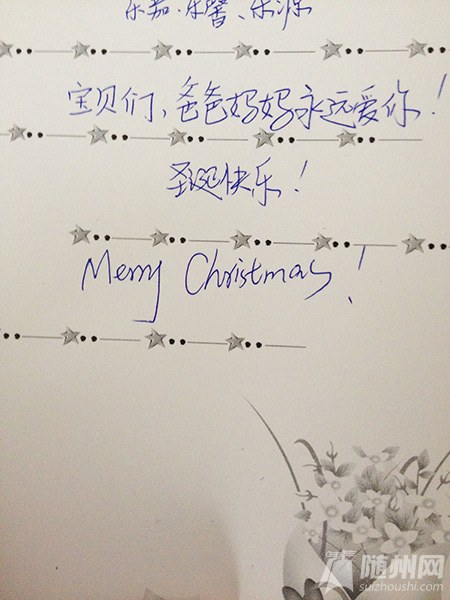 乐茄、乐馨、乐源
宝贝们、爸爸妈妈永远爱你!
圣诞快乐!
Merry Christmas!
随州网
suizhoushi.com